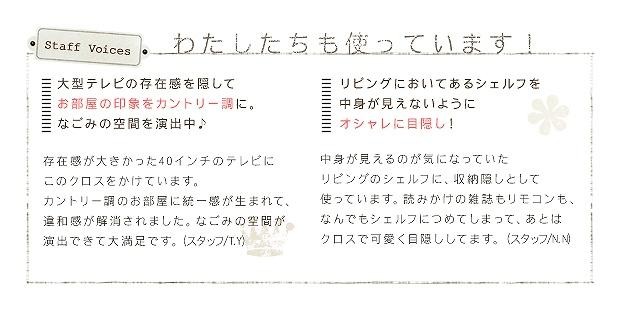 Staff Voices
わたしたちも使っています！
大型テレビの存在感を隠して
お部屋の印象をカントリー調に。
なごみの空間を演出中♪
存在感が大きかった40インチのテレビに
このクロスをかけています。
カントリー調のお部屋に統一感が生まれて、
違和感が解消されました。なごみの空間が
演出できて大満足です。(スタッフ/T.Y)
リビングにおいてあるシェルフを
中身が見えないように
オシャレに目隠し！
中身が見えるのが気になっていた
リビングのシェルフに、収納隠しとして
使っています。読みかけの雑誌もリモコンも、
なんでもシェルフにつめてしまって、あとは
クロスで可愛く目隠ししてます。(スタッフ/N.N)